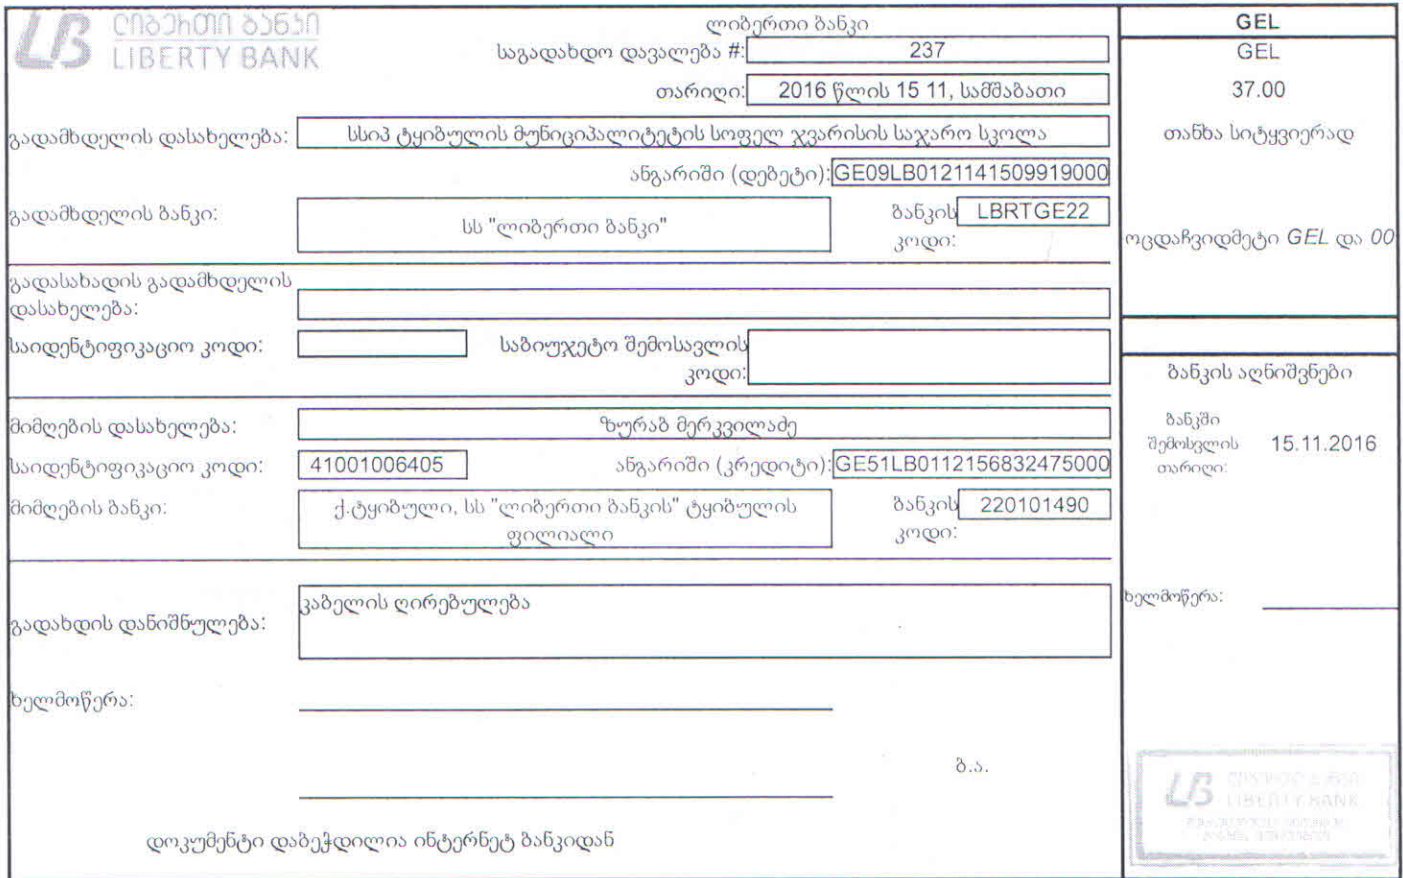 ლიბერთი ბანკი
LIBERTY BANK
ლიბერთი ბანკი
საგადახდო დავალება #: 237
თარიღი: 2016 წლის 15 11, სამშაბათი
გადამხდელის დასახელება: სსიპ ტყიბულის მუნიციპალიტეტის სოფელ ჯვარისის საჯარო სკოლა
ანგარიში (დებეტი): GE09LB0121141509919000
გადამხდელის ბანკი: სს "ლიბერთი ბანკი" ბანკის კოდი: LBRTGE22
გადასახადის გადამხდელის
დასახელება:
საიდენტიფიკაციო კოდი: საბიუჯეტო შემოსავლის
კოდი:
მიმღების დასახელება: ზურაბ მერკვილაძე
საიდენტიფიკაციო კოდი: 41001006405 ანგარიში (კრედიტი): GE51LB0112156832475000
მიმღების ბანკი: ქ.ტყიბული, სს "ლიბერთი ბანკის" ტყიბულის ბანკის 220101490
ფილიალი კოდი:
კაბელის ღირებულება
გადახდის დანიშნულება:
ხელმოწერა:
ბ.ა.
დოკუმენტი დაბეჭდილია ინტერნეტ ბანკიდან
GEL
GEL
37.00
თანხა სიტყვიერად
ოცდაჩვიდმეტი GEL და 00
ბანკის აღნიშვნები
ბანკში
შემოსვლის 15.11.2016
თარიღი:
ხელმოწერა:
ლიბერთი ბანკი
LIBERTY BANK